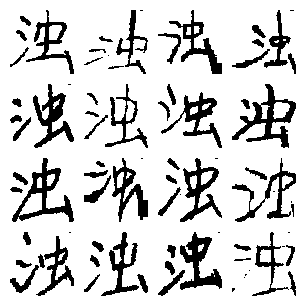 浊浊浊浊
浊浊浊浊
浊浊浊浊
浊浊浊浊